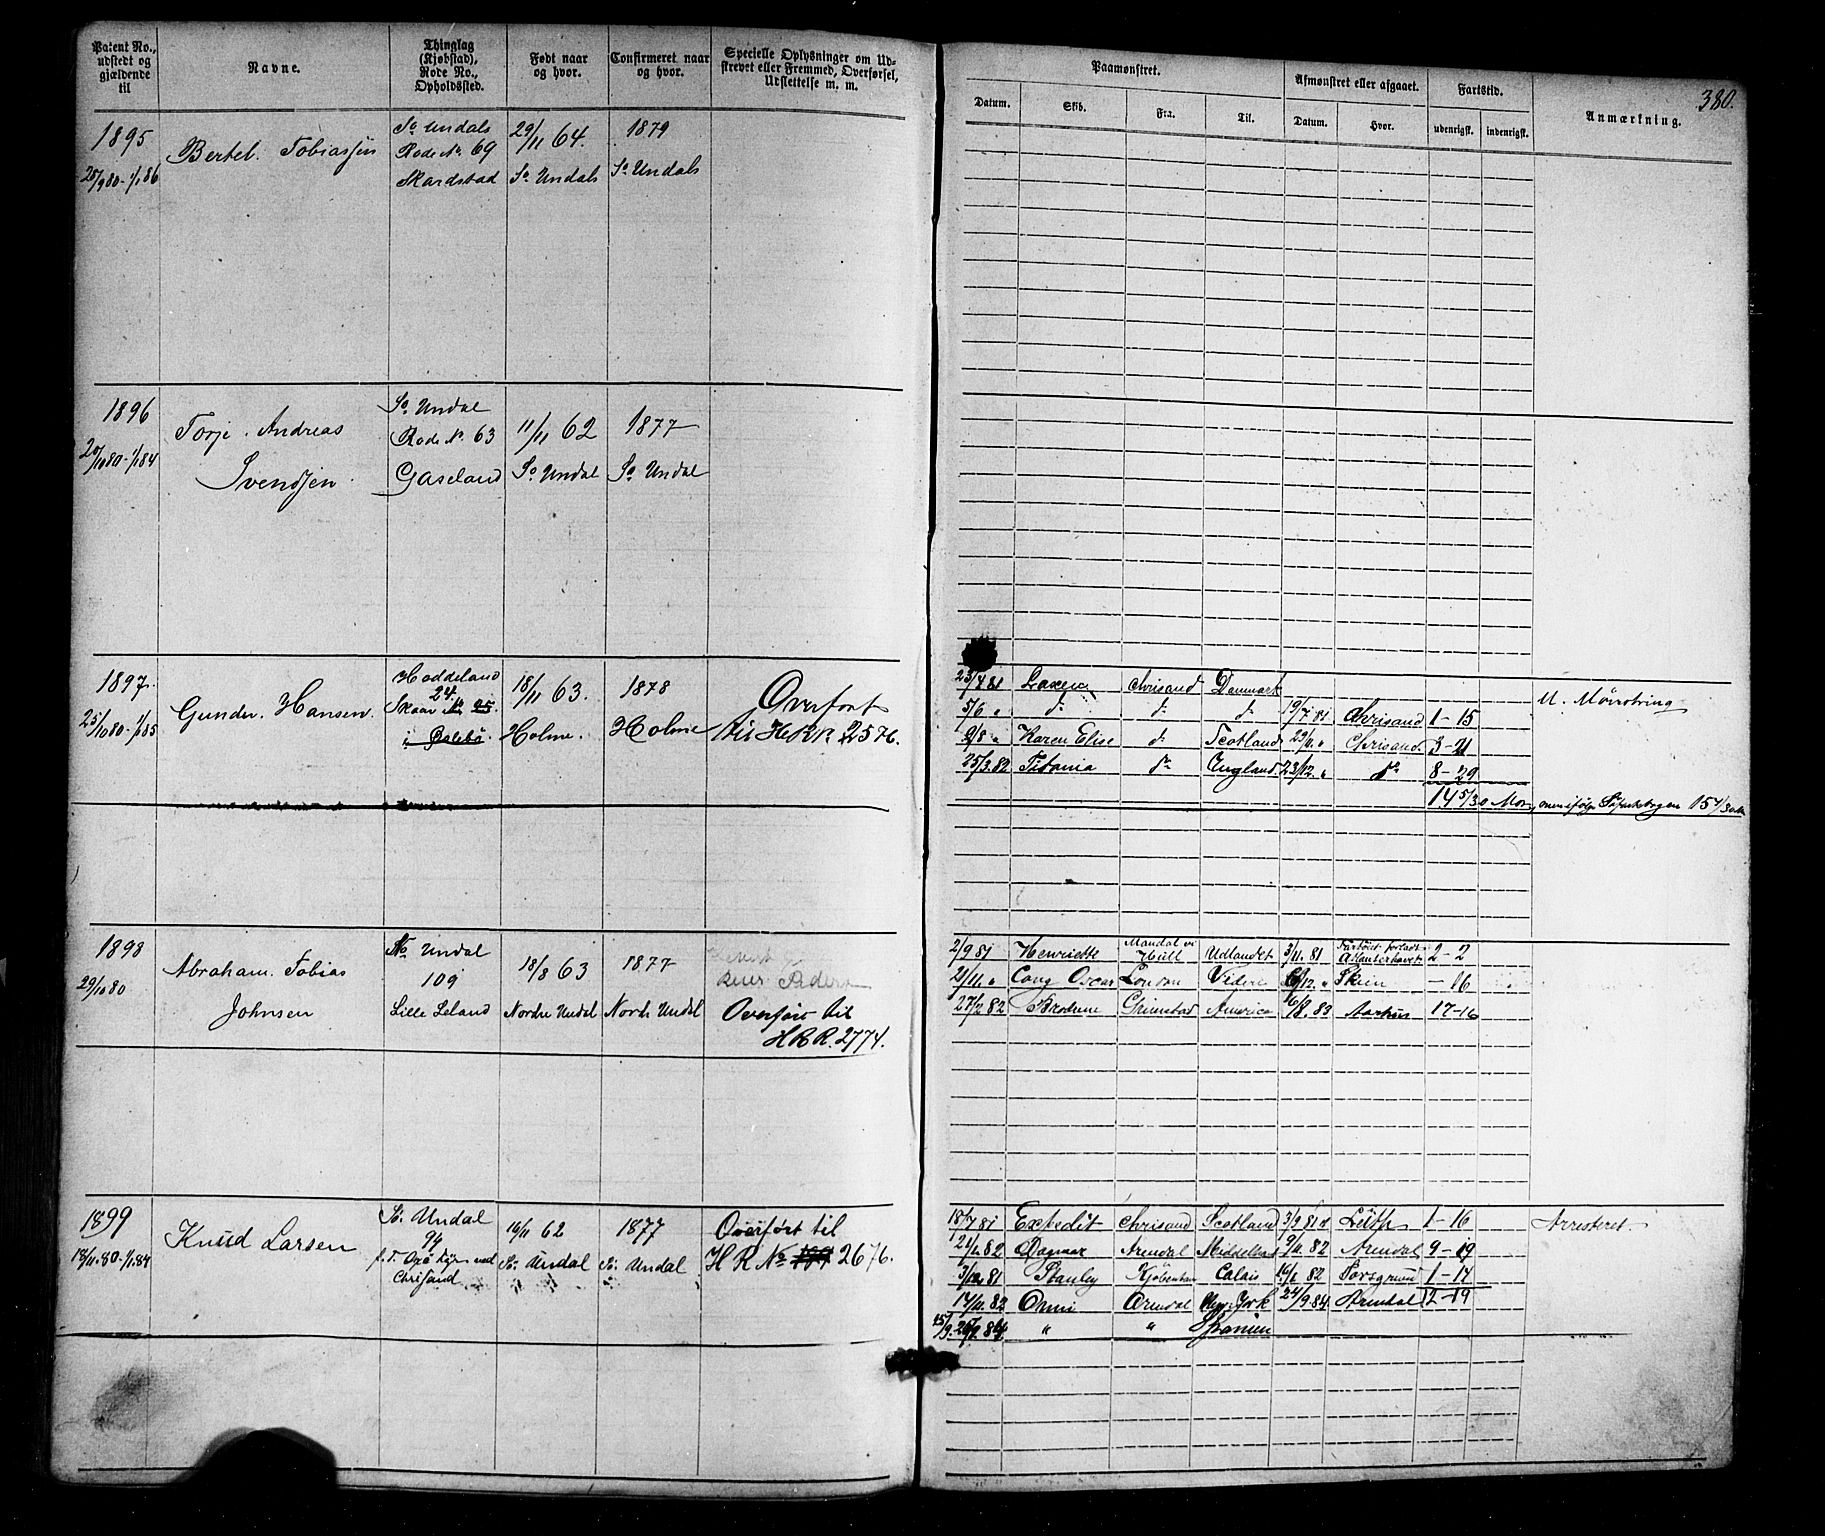 Patent No., udstedt og gjældende til
Navne.
Thinglag (Kjøbstad), Rode No., Opholdssted.
Født naar og hvor.
Confirmeret naar og hvor.
Specielle Oplysninger om Udstrevet eller Fremmed, Overførsel, Udslettelse m. m.
Paamønstret.
Datum. Skib. Fra. Til.
Afmønstret eller afgaaet.
Datum. Hvor.
Fartstid.
udenrigsk. indenrigsk.
Anmærkning.
380.
1895
28/9 80 - 1/1 86
Bertel. Tobiassen
So Undals
Rode No. 69
Skardstad
29/11 64.
So Undals
1879
So Undals
1896
20/10 80 - 1/1 84
Torje. Andreas
Svendsen
So Undal
Rode No. 63
Gaseland
11/11 62
So Undal
1877
So Undal
1897
25/10 80 - 1/1 85
Gunder. Hansen.
Hoddeland
24.
Skaar No 25
18/11 63.
Holme.
1878
Holme
Overført
til H R R 2576.
23/4 81 Chrisand Danmark M. Mönstring
5/6 " do do do 19/7 81 Chrisand 1-15
2/8 " Karen Elise do Scotland 29/11 " Chrisand 3-21
25/3.82 Titania do England. 23/12. " do 8-29
14 5/30
1898
29/10 80
Abraham. Tobias
Johnsen
No Undal
109
Lille Leland
18/8 63
Nordre Undal
1877
Nordr Undal
Overført til
H R R. 2774.
2/9 81 Henriette Mandal vi Hull Udlandet 3/11. 81 Atlanterhavet 2-2
2/11. " Oscar London 12. " Skien -16
27/2 82 Brødrene Grimstad America 16/8. 83 Aarhus 17-16
1899
18/11. 80. - 1/1. 84
Knud Larsen
So. Undal
94
Chrisand
16/11 62
So. Undal
1877
So. Undal
Overført til
H R No 2676.
18/7 81 Expedit Chrisand Scotland 3/9 81 Leith 1-16 Arresteret
21/1. 82 Dagmar Arendal Middelhavet 9/11. 82 Arendal 9-19
3/12. 81 Stanley Kjøbenhavn Calais 16/1 82 Porsgrund 1-14
14/11. 82 Omni Arendal New York 24/9. 84. Arendal 12-19
" " Spanien